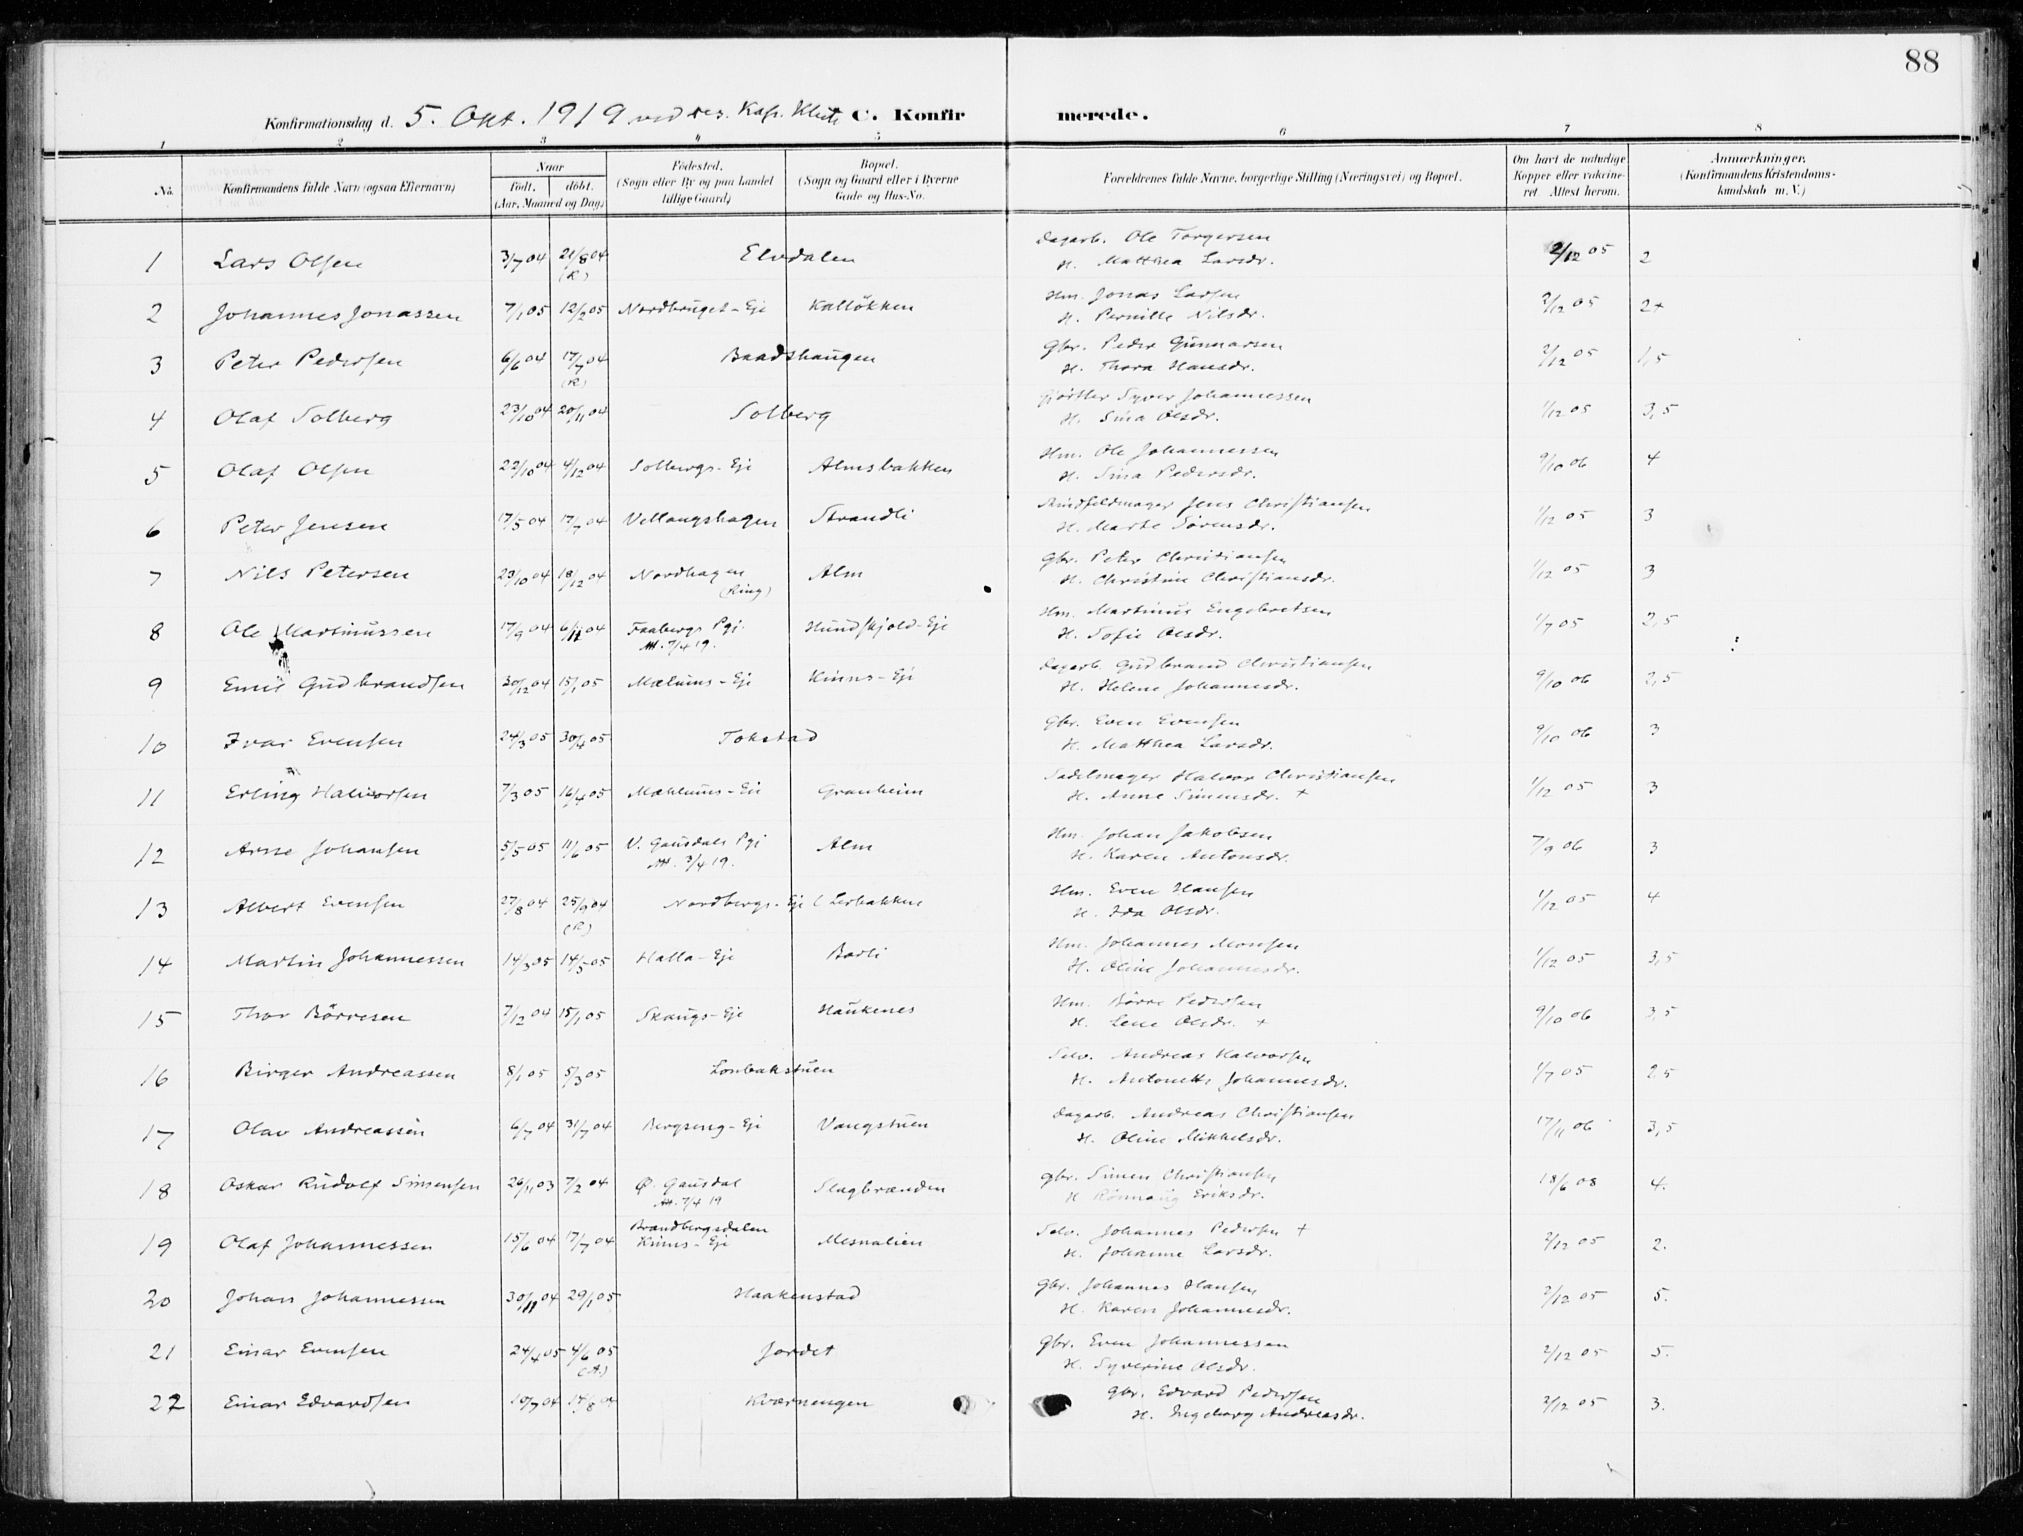 88
Konfirmationsdag d. 5. Okt. 1919 ved res. Kap. C. Konfirmerede.
1 2 3 4 5 6 7 8
No. Konfirmandens fulde Navn (ogsaa Efternavn) Naar født. døbt. (Aar, Maaned og Dag) Fødested. (Sogn eller By og paa Landet tillige Gaard) Bopæl. (Sogn og Gaard eller i Byerne Gade og Hus-No. Forældrenes fulde Navne, borgerlige Stilling (Næringsvei) og Bopæl. Om havt de naturlige Kopper eller vakcineret. Attest herom. Anmærkninger. (Konfirmandens Kristendomskundskab m. V.)
1 Lars Olsen 3/7 04 21/8 04 (K) Elvdalen Dagarb. Ole Torgersen 2/12 05 2
H. Matthea Larsdr.
2 Johannes Jonassen 7/1 05 12/2 05 Nordhruget-Eje Kalløkken Hm. Jonas Larsen 2/12 05 2+
H. Pernille Nilsdr.
3 Peter Pedersen 6/6 04 17/7 04 (K) Baadshaugen Gbr. Peder Gunnarsen 2/12 05 1,5
H. Thora Hansdr.
4 Olaf Solberg 23/10 04 20/11 04 Solberg Gjørtler Syver Johannessen 1/12 05 3,5
H. Sina Olsdr.
5 Olaf Olsen 22/10 04 4/12 04 Solbergs-Eje Almsbakken Hm. Ole Johannessen 9/10 06 4
H. Sina Pedersdr.
6 Peter Jensen 17/5 04 17/7 04 Vellangshagen Strandli Jens Christiansen 1/12 05 3
H. Marte Sørensdr.
7 Nils Petersen 29/10 04 18/12 04 Nordhagen (Ring) Alm Gbr. Peter Christiansen 1/12 05 3
H. Christine Christiansdr.
8 Ole Martinussen 17/9 04 6/11 04 Faabergs Pgj. Att. 7/4 19. Hundskjold-Eje Hm. Martinus Engebretsen 1/7 05 2,5
H. Sofie Olsdr.
9 Emil Gudbrandsen 30/12 04 15/1 05 Mælums-Eje Kinns-Eje Dagarb. Gudbrand Christiansen 9/10 06 2,5
H. Helene Johannesdr.
10 Ivar Evensen 24/3 05 30/4 05 Tokstad Gbr. Even Evensen 9/10 06 3
H. Matthea Larsdr.
11 Erling Halvorsen 7/3 05 16/4 05 Mæhlums-Eje Granheim Sadelmager Halvor Christiansen 1/12 05 3
H. Anne Simensdr. +
12 Arne Johansen 5/5 05 11/6 05 V. Gausdals Pgj Att. 3/4 19. Alm Hm. Johan Jakobsen 7/9 06 3
H. Karen Antonsdr.
13 Albert Evensen 27/8 04 25/9 04 (K) Nordbergs-Eje (Lerbakken Hm. Even Hansen 1/12 05 4
H. Ida Olsdr.
14 Martin Johannessen 14/3 05 14/5 05 Halla-Eje Barli Hm. Johannes Monsen 1/12 05 3,5
H. Oline Johannesdr.
15 Thor Børresen 7/12 04 15/1 05 Skaugs-Eje Haukenes Hm. Børre Pedersen 9/10 06 3,5
H. Lene Olsdr. +
16 Birger Andreassen 8/1 05 5/3 05 Lonbakstuen Selv. Andreas Halvorsen 1/7 05 2,5
H. Antonette Johannesdr.
17 Olav Andreassen 6/7 04 31/7 04 Bergseng-Eje Vangstuen Dagarb. Andreas Christiansen 17/11 06 3,5
H. Oline Mikkelsdr.
18 Oskar Rudolf Simensen 26/11 03 7/2 04 Ø. Gausdal Att. 7/4 19 Slagbrænden Gbr. Simen Christiansen 18/6 08 4.
H Rønnaug Eriksdr.
19 Olaf Johannessen 15/6 04 17/7 04 Brandbergsdalen Kinns-Eje Mesnalien Selv. Johannes Pedersen + 2/12 05 2.
H. Johanne Larsdr.
20 Johan Johannessen 30/11 04 29/1 05 Haakenstad Gbr. Johannes Hansen 2/12 05 5.
H. Karen Johannesdr.
21 Einar Evensen 24/4 05 4/6 05 (A) Jordet Gbr. Even Johannessen 2/12 05 5.
H. Syverine Olsdr.
22 Einar Edvardsen 19/7 04 14/8 04 Kværnengen Gbr. Edvard Pedersen 2/12 05 3.
H. Ingeborg Andreasdr.